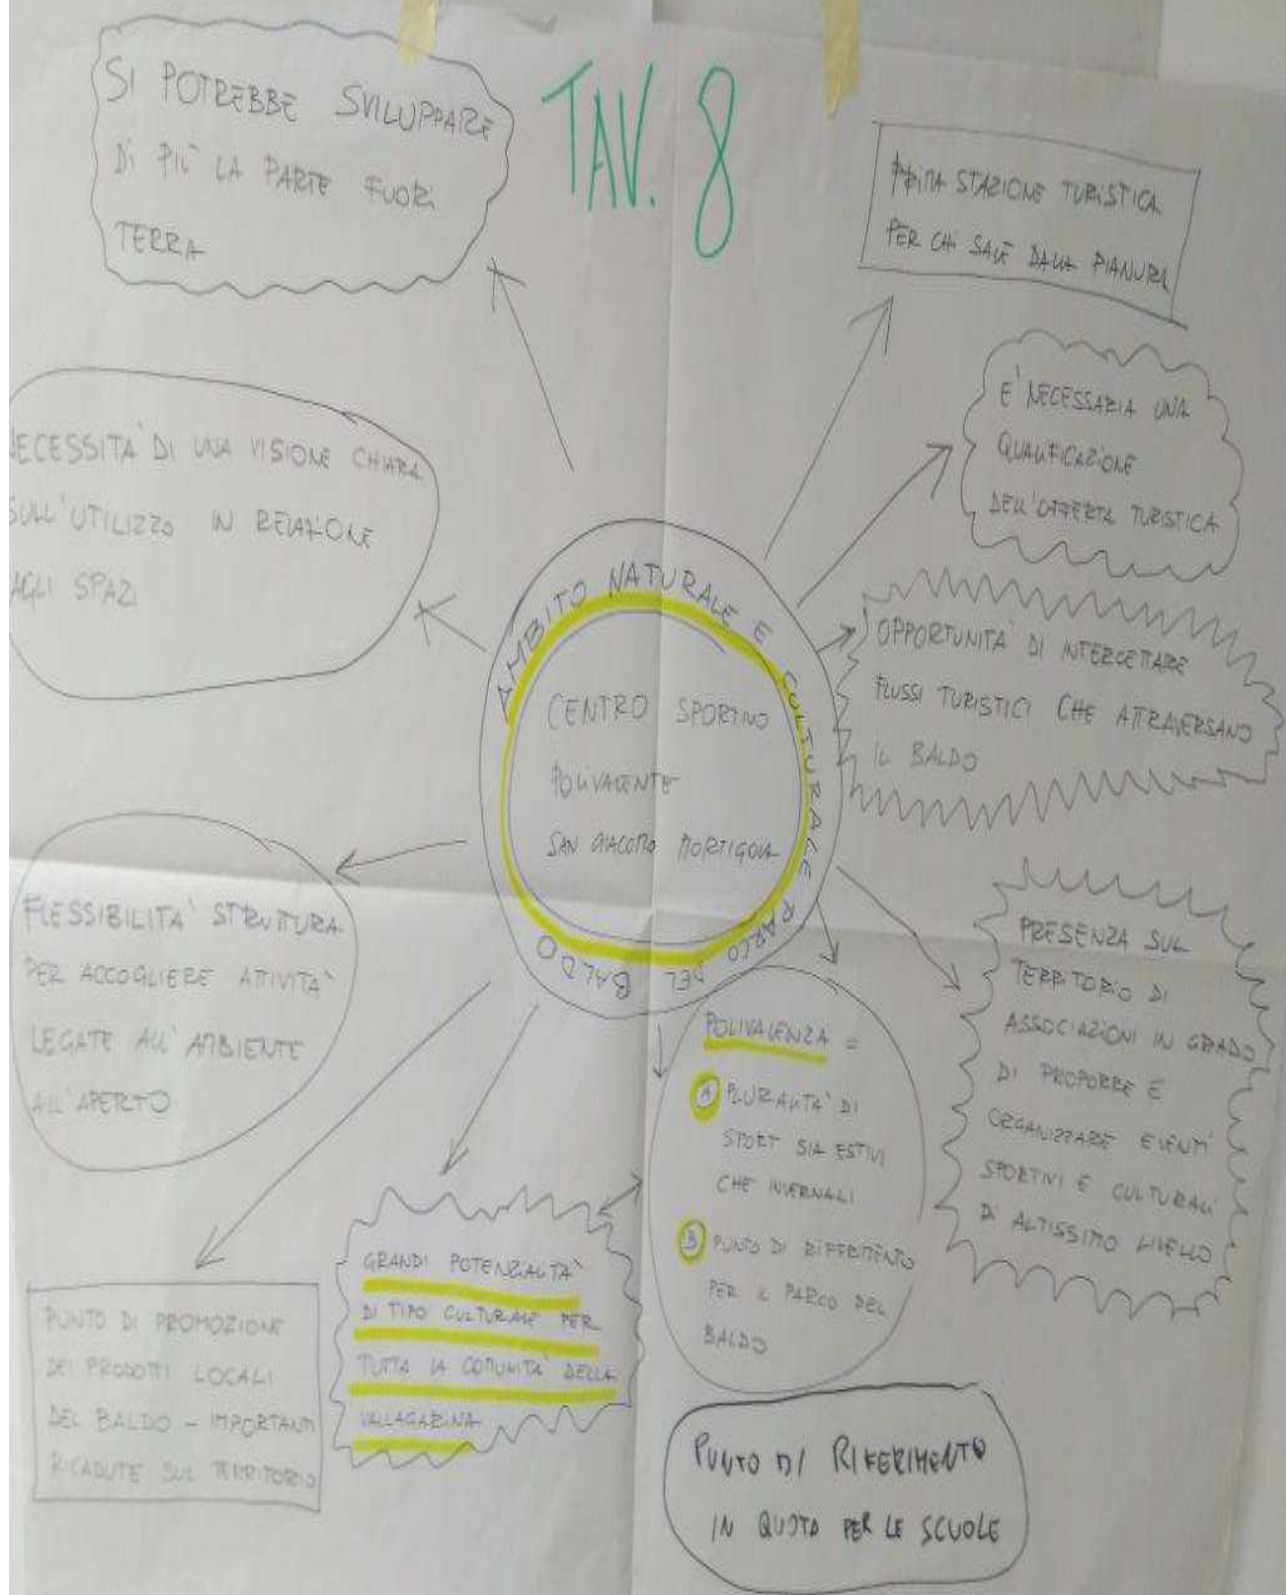 TAV. 8
SI POTREBBE SVILUPPARE
DI PIU' LA PARTE FUORI
TERRA
PRIMA STAZIONE TURISTICA
PER CHI SALE DALLA PIANURA
E' NECESSARIA UNA
QUALIFICAZIONE
DELL'OFFERTA TURISTICA
NECESSITA' DI UNA VISIONE CHIARA
SULL'UTILIZZO IN RELAZIONE
AGLI SPAZI
OPPORTUNITA' DI INTERCETTARE
FLUSSI TURISTICI CHE ATTRAVERSANO
IL BALDO
AMBITO NATURALE E CULTURALE PARCO DEL BALDO
CENTRO SPORTIVO
POLIVALENTE
SAN GIACOMO MORTIGOLA
FLESSIBILITA' STRUTTURA
PER ACCOGLIERE ATTIVITA'
LEGATE ALL'AMBIENTE
ALL'APERTO
PRESENZA SUL
TERRITORIO DI
ASSOCIAZIONI IN GRADO
DI PROPORRE E
ORGANIZZARE EVENTI
SPORTIVI E CULTURALI
DI ALTISSIMO LIVELLO
POLIVALENZA =
A PLURALITA' DI
SPORT SIA ESTIVI
CHE INVERNALI
B PUNTO DI RIFERIMENTO
PER IL PARCO DEL
BALDO
GRANDI POTENZIALITA'
DI TIPO CULTURALE PER
TUTTA LA COMUNITA' DELLA
VALLAGARINA
PUNTO DI PROMOZIONE
DEI PRODOTTI LOCALI
DEL BALDO - IMPORTANTI
RICADUTE SUL TERRITORIO
PUNTO DI RIFERIMENTO
IN QUOTA PER LE SCUOLE